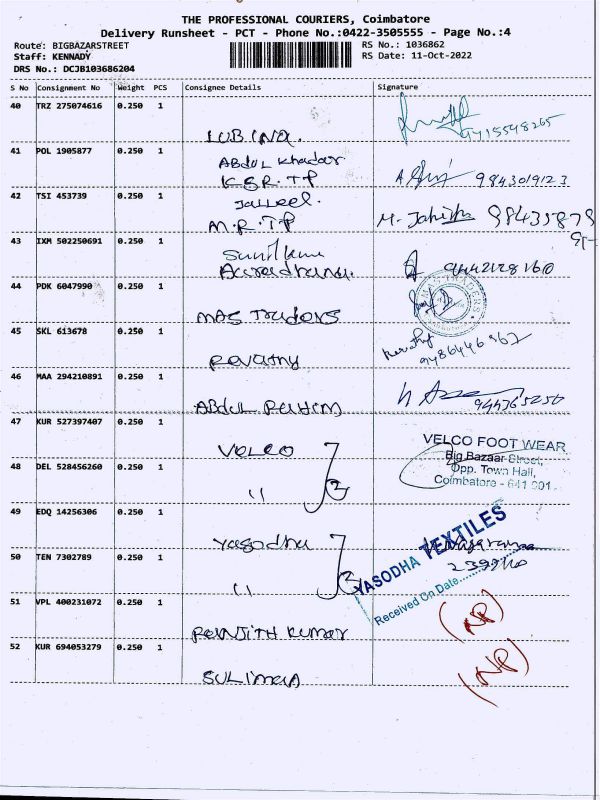 THE PROFESSIONAL COURIERS, Coimbatore
Delivery Runsheet - PCT - Phone No.:0422-3505555 - Page No.:4
Route: BIGBAZARSTREET RS No.: 1036862
Staff: KENNADY RS Date: 11-Oct-2022
DRS No.: DCJB103686204
S No Consignment No Weight PCS Consignee Details Signature
40 TRZ 275074616 0.250 1
LUBINA.
41 POL 1905877 0.250 1 Abdul Khadar
K.S.R. TP 9843019123
42 TSI 453739 0.250 1 Jaleel.
M.R. TP
43 IXM 502250691 0.250 1 Sunil
44 PDK 6047990 0.250 1
MAS Traders MAS TRADERS
45 SKL 613678 0.250 1
Revathy
46 MAA 294210891 0.250 1
Abdul Rahim
47 KUR 527397407 0.250 1
VELCO VELCO FOOT WEAR
Big Bazaar Street,
48 DEL 528456260 0.250 1 Opp. Town Hall,
" 2 Coimbatore - 641 001.
49 EDQ 14256306 0.250 1
Yasodha YASODHA TEXTILES
50 TEN 7302789 0.250 1
" 2 Received On Date
51 VPL 400231072 0.250 1 (NP)
Ranjith Kumar
52 KUR 694053279 0.250 1 (NP)